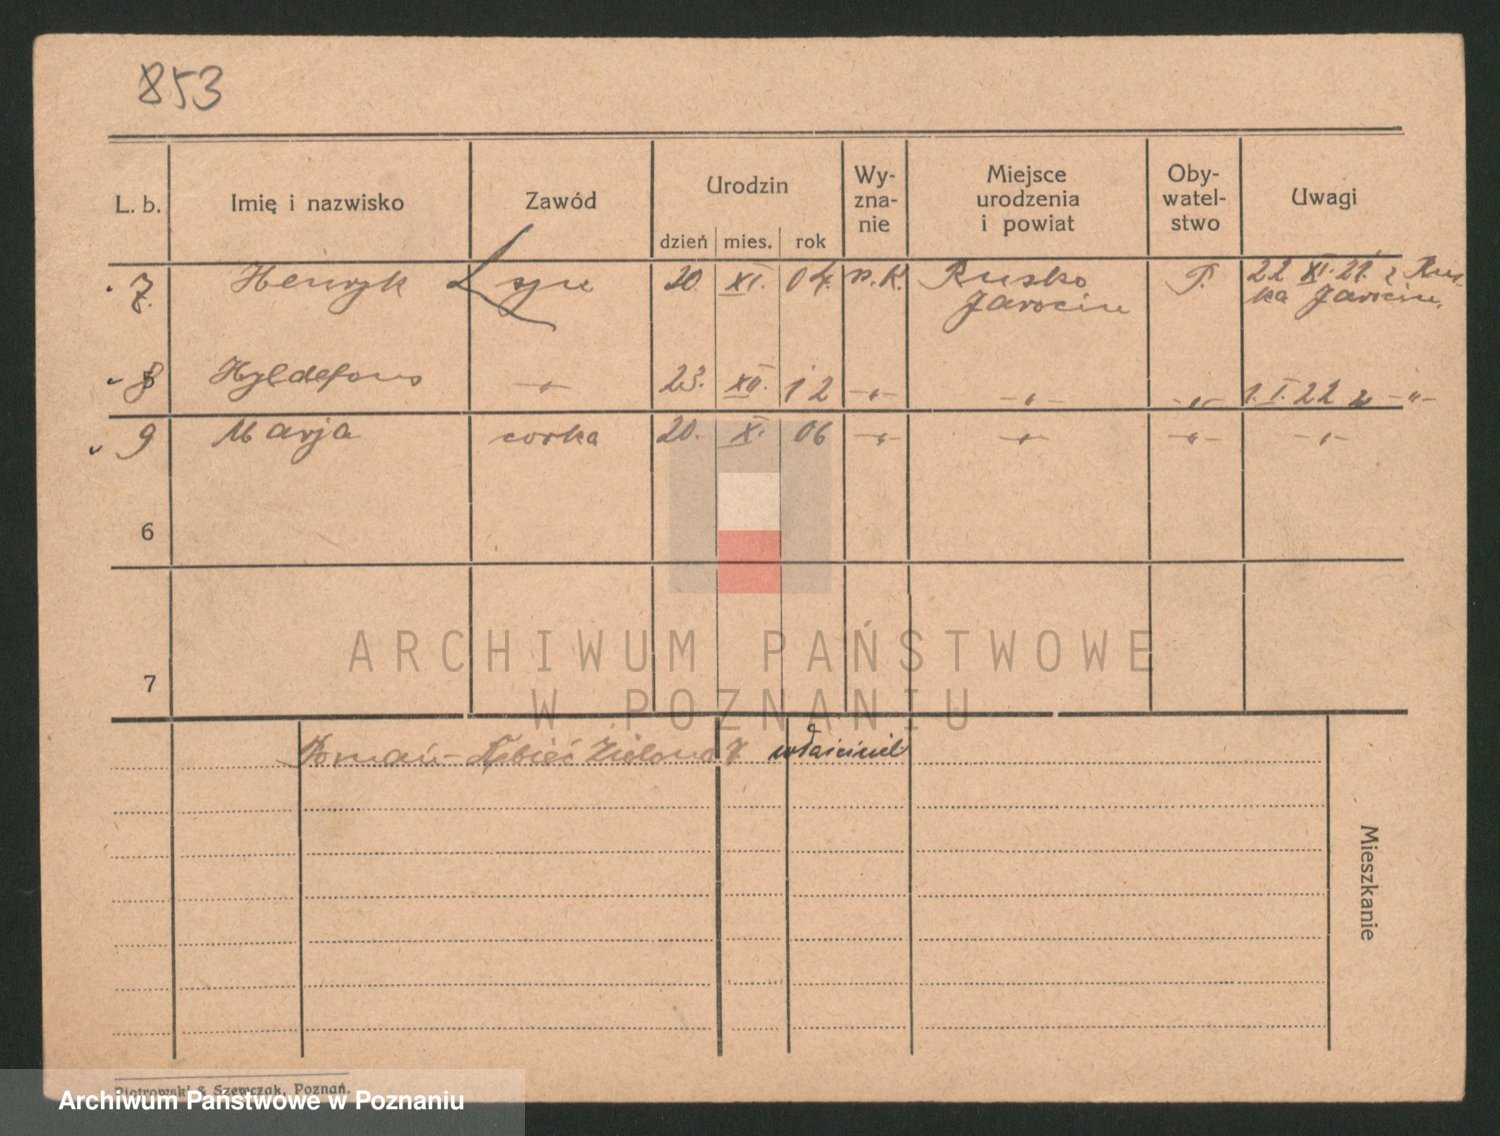 853
L. b. Imię i nazwisko Zawód Urodzin Wy-zna-nie Miejsce urodzenia i powiat Oby-watel-stwo Uwagi
dzień mies. rok
7. Henryk syn 20. XI. 04. r. K. Rusko Jarocin P. 22 XI. 21. z Rus-ka Jarocin.
8 5 Hyldefons -"- 23. XII. 12 -"- -"- -"- 1. I. 22 z -"-
9 Marja corka 20. X. 06 -"- -"- -"- -"-
6
7
ARCHIWUM PAŃSTWOWE
W POZNANIU
Poznań - Dębiec Zielona 7 właściciel
Mieszkanie
Piotrowski & Szewczak, Poznań.
Archiwum Państwowe w Poznaniu